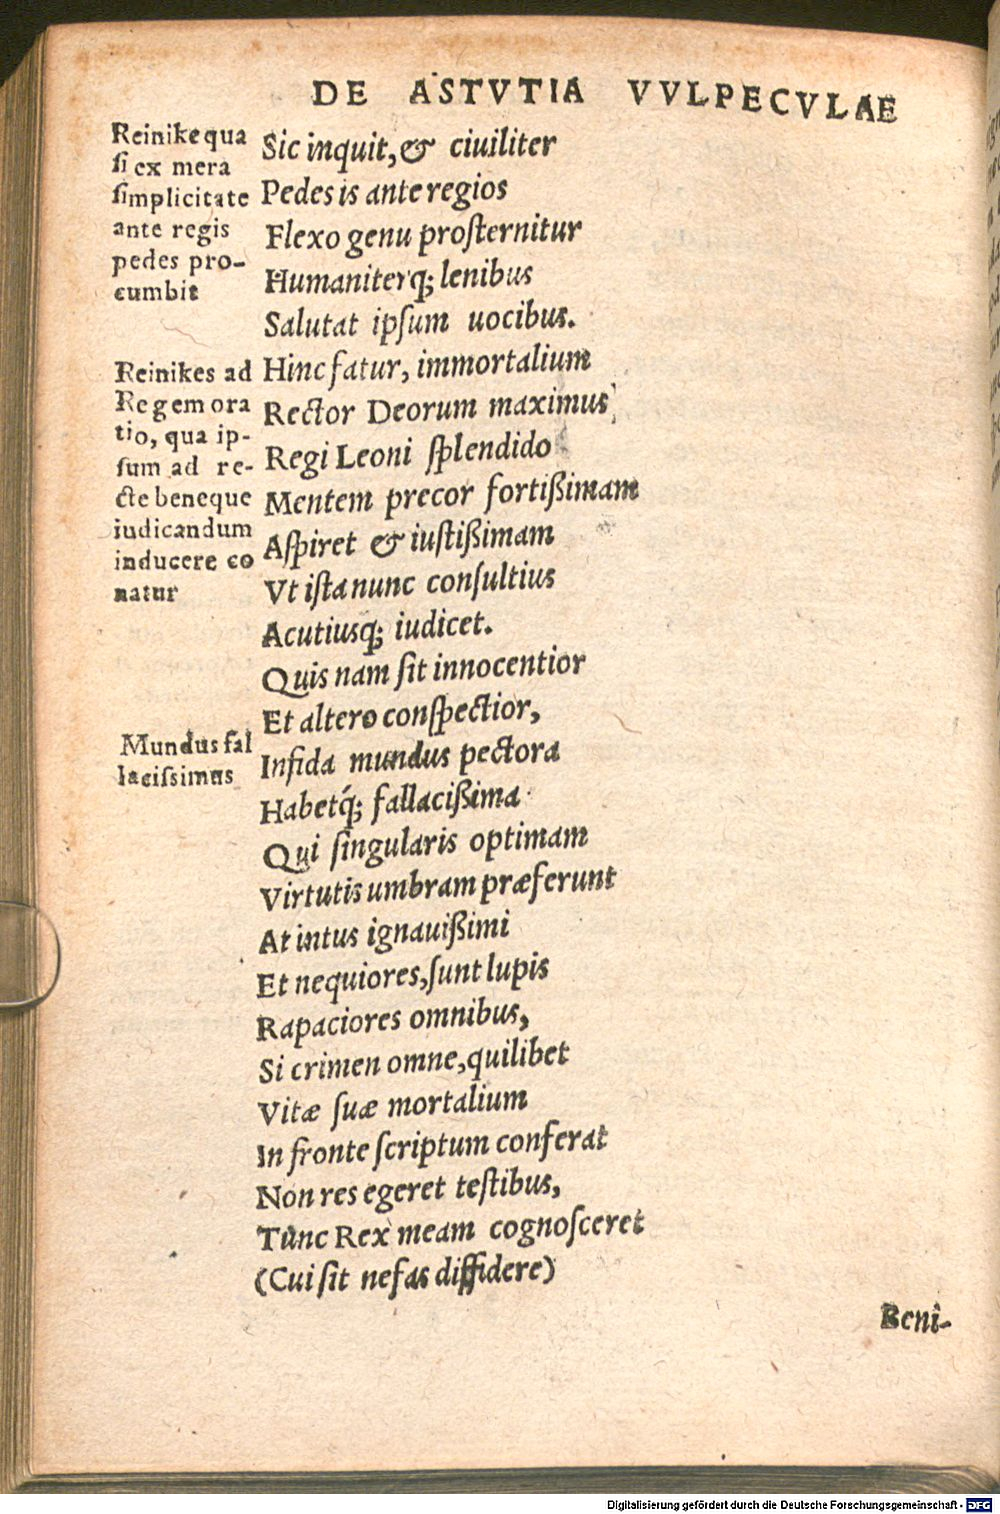 DE ASTVTIA VVLPECVLAE
Reinike qua
si ex mera
simplicitate
ante regis
pedes pro-
cumbit
Sic inquit, & ciuiliter
Pedes is ante regios
Flexo genu prosternitur
Humaniterq; lenibus
Salutat ipsum uocibus.
Reinikes ad
Regem ora
tio, qua ip-
sum ad re-
cte beneque
iudicandum
inducere co
natur
Hinc fatur, immortalium
Rector Deorum maximus,
Regi Leoni splendido
Mentem precor fortißimam
Aspiret & iustißimam
Vt ista nunc consultius
Acutiusq; iudicet.
Quis nam sit innocentior
Et altero conspectior,
Mundus fal
lacissimus
Infida mundus pectora
Habetq́; fallacißima
Qui singularis optimam
Virtutis umbram præferunt
At intus ignauißimi
Et nequiores, sunt lupis
Rapaciores omnibus,
Si crimen omne, quilibet
Vitæ suæ mortalium
In fronte scriptum conferat
Non res egeret testibus,
Tunc Rex meam cognosceret
(Cui sit nefas diffidere)
Beni-
Digitalisierung gefördert durch die Deutsche Forschungsgemeinschaft - DFG